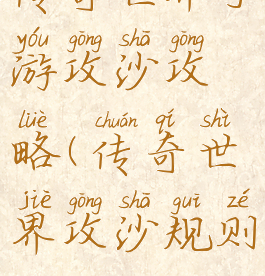 yóu gōng shā gōng
游攻沙攻
lüè chuán qí shì
略(传奇世
jiè gōng shā guī zé
界攻沙规则